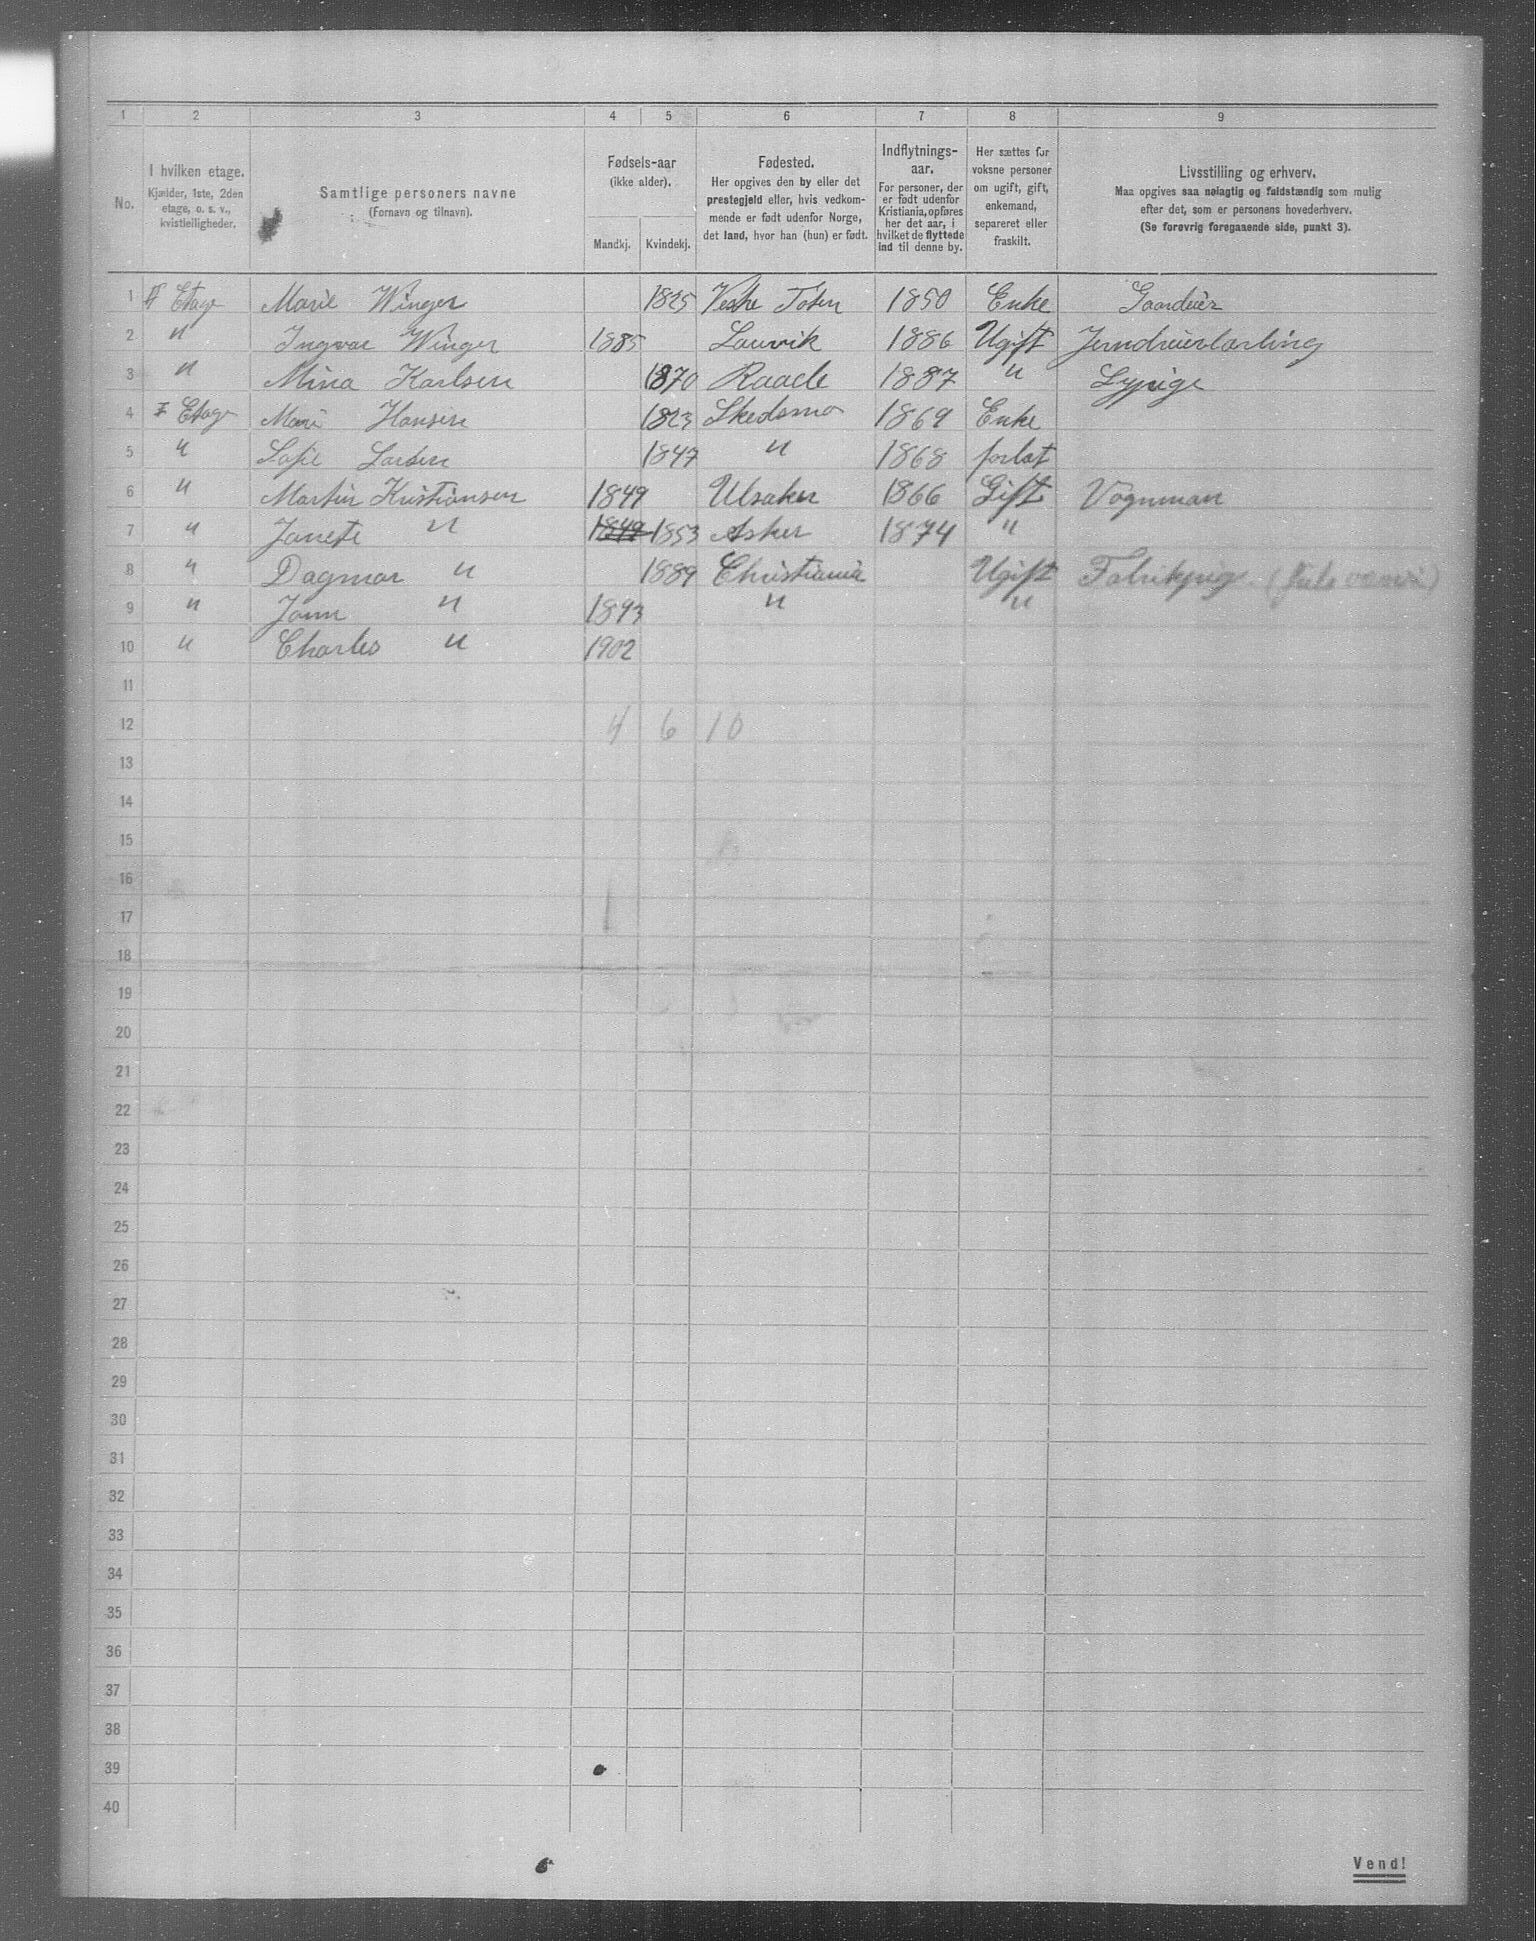 1 2 3 4 5 6 7 8 9
No.
I hvilken etage.
Kjælder, 1ste, 2den
etage, o. s. v.,
kvistleiligheder.
Samtlige personers navne
(Fornavn og tilnavn).
Fødsels-aar
(ikke alder).
Mandkj. Kvindekj.
Fødested.
Her opgives den by eller det
prestegjeld eller, hvis vedkom-
mende er født udenfor Norge,
det land, hvor han (hun) er født.
Indflytnings-
aar.
For personer, der
er født udenfor
Kristiania, opføres
her det aar, i
hvilket de flyttede
ind til denne by.
Her sættes for
voksne personer
om ugift, gift,
enkemand,
separeret eller
fraskilt.
Livsstilling og erhverv.
Maa opgives saa nøiagtig og fuldstændig som mulig
efter det, som er personens hovederhverv.
(Se forøvrig foregaaende side, punkt 3).
1 Etage Marie Winger 1825 Vestre Toten 1850 Enke Gaardeier
2 " Ingvar Winger 1885 Laurvik 1886 Ugift Jerndreierlærling
3 " Mina Karlsen 1870 Raade 1887 " Sypige
4 I Etage Marie Hansen 1823 Skedsmo 1869 Enke
5 " Sofie Larsen 1847 " 1868 forlat
6 " Martin Kristiansen 1849 Ulsaker 1866 Gift Vognman
7 " Janete " 1849 1853 Asker 1874 "
8 " Dagmar " 1889 Christiania Ugift Fabrikpige
9 " " 1893 " "
10 " Charles " 1902
11
12 4 6 10
13
14
15
16
17
18
19
20
21
22
23
24
25
26
27
28
29
30
31
32
33
34
35
36
37
38
39
40
Vend!